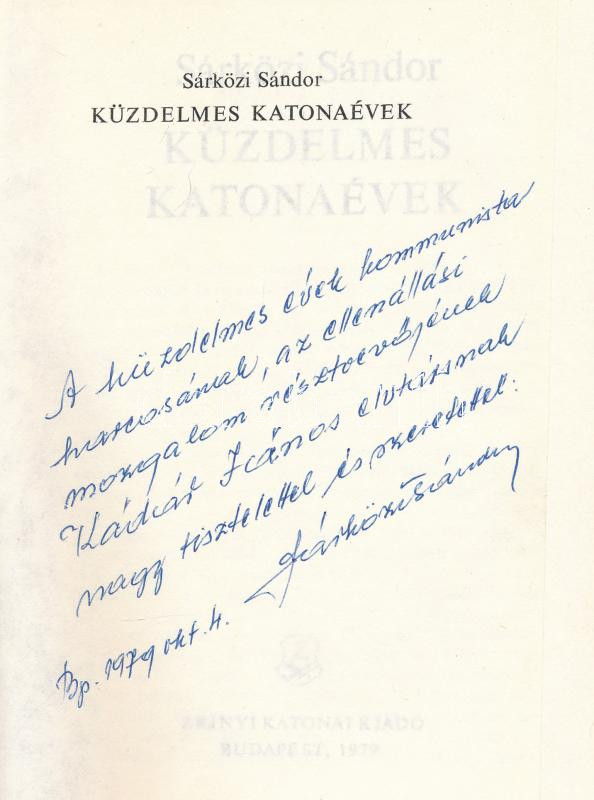 Sárközi Sándor
KÜZDELMES KATONAÉVEK
Sárközi Sándor
KÜZDELMES
KATONAÉVEK
A küzdelmes évek kommunista
harcosának, az ellenállási
mozgalom résztvevőjének
Kádár János elvtársnak
nagy tisztelettel és szeretettel:
Sárközi Sándor
Bp. 1979 okt. 4.
ZRÍNYI KATONAI KIADÓ
BUDAPEST, 1979